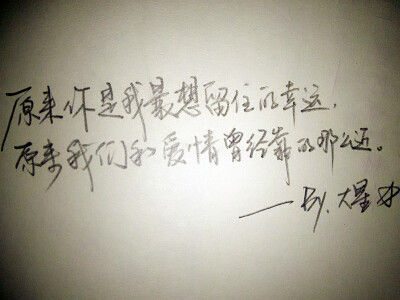 原来你是我最想留住的幸运,
原来我们和爱情曾经靠的那么近。
——By.大星